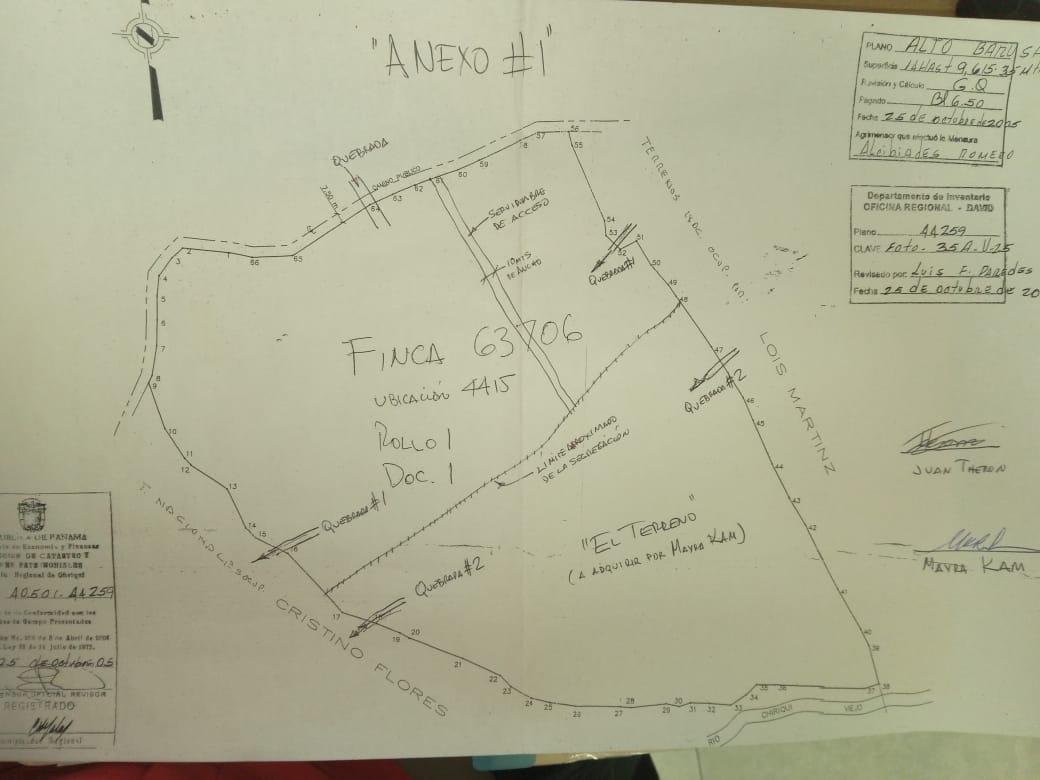 "ANEXO #1"
PLANO ALTO BARU
Superficie 14HAS + 9,615.35 Mt
Revisión y Cálculo G.Q
Pagado B/ 6.50
Fecha 25 de octubre de 2005
Agrimensor que efectuó la Mensura
Alcibiades Romero
Departamento de Inventario
OFICINA REGIONAL - DAVID
Plano 44259
CLAVE Foto - 35A-U-25
Revisado por: Luis F. Paredes
Fecha 25 de Octubre de 20
QUEBRADA
2.50 m
CAMINO PUBLICO
SERVIDUMBRE
DE ACCESO
10 MTS
DE ANCHO
TERRENOS
OCUP. POR:
LOIS MARTINZ
QUEBRADA #1
QUEBRADA #2
FINCA 63706
UBICACIÓN 4415
ROLLO 1
DOC. 1
LIMITE APROXIMADO
DE LA SEGREGACIÓN
"EL TERRENO"
(A ADQUIRIR POR MAYRA KAM)
QUEBRADA #1
QUEBRADA #2
T. NACIONALES OCUP.
CRISTINO FLORES
JUAN THERON
MAYRA KAM
RIO CHIRIQUI VIEJO
1
2
3
4
5
6
7
8
9
10
11
12
13
14
15
16
17
18
19
20
21
22
23
24
25
26
27
28
29
30
31
32
33
34
35
36
37
38
39
40
41
42
43
44
45
46
47
48
49
50
51
52
53
54
55
56
57
58
59
60
61
62
63
64
65
66
DE PANAMA
de Economía y Finanzas
DE CATASTRO Y
PATRIMONIALES
Regional de Chiriquí
40501-44259
de Conformidad con los
de Campo Presentados
de Abril de
de Julio de
25 de Octubre 05
OFICIAL REVISOR
REGISTRADO
Regional